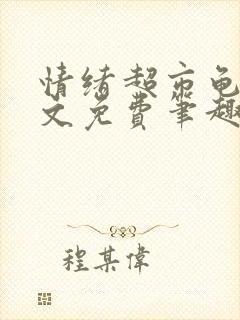 情绪超市龟
文免费笔趣
程某偉